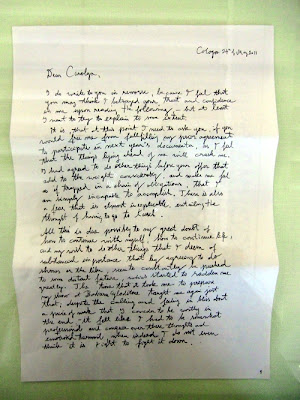 Cologne 25th of May 2011
Dear Carolyn,
I do write to you in remorse, because I feel that
you may think I betrayed your trust and confidence
in me upon reading the following – but at least
I want to try to explain to you
It is that at this point I need to ask you, if you
would free me from fulfilling my prior agreement
to participate in next year's documenta, as I feel
that the things lying ahead of me will crush me.
I had agreed to do other things before your offer that
add to the weight considerably, and make me feel
as if trapped in a chain of obligations, that I
am simply incapable to accomplish. There is also
a fear that is almost inexplicable, entailing the
thought of having to go to Kassel.
All this is due possibly to my great doubt of
how to continue with myself, how to continue life,
and my wish to do other things that I deem of
substantial importance that by agreeing to do
shows or the like seem to continuously be pushed
to some distant future, which started to sadden me
greatly. The time that it took me to prepare
my show at taught me again just
that, despite the outcome and being in bliss about
a piece of work that I consider to be worthy in
the end, it felt like I had to be somewhat
professional and conquer over these thoughts and
emotional turmoil, when indeed I do not even
think it is right to fight it down.